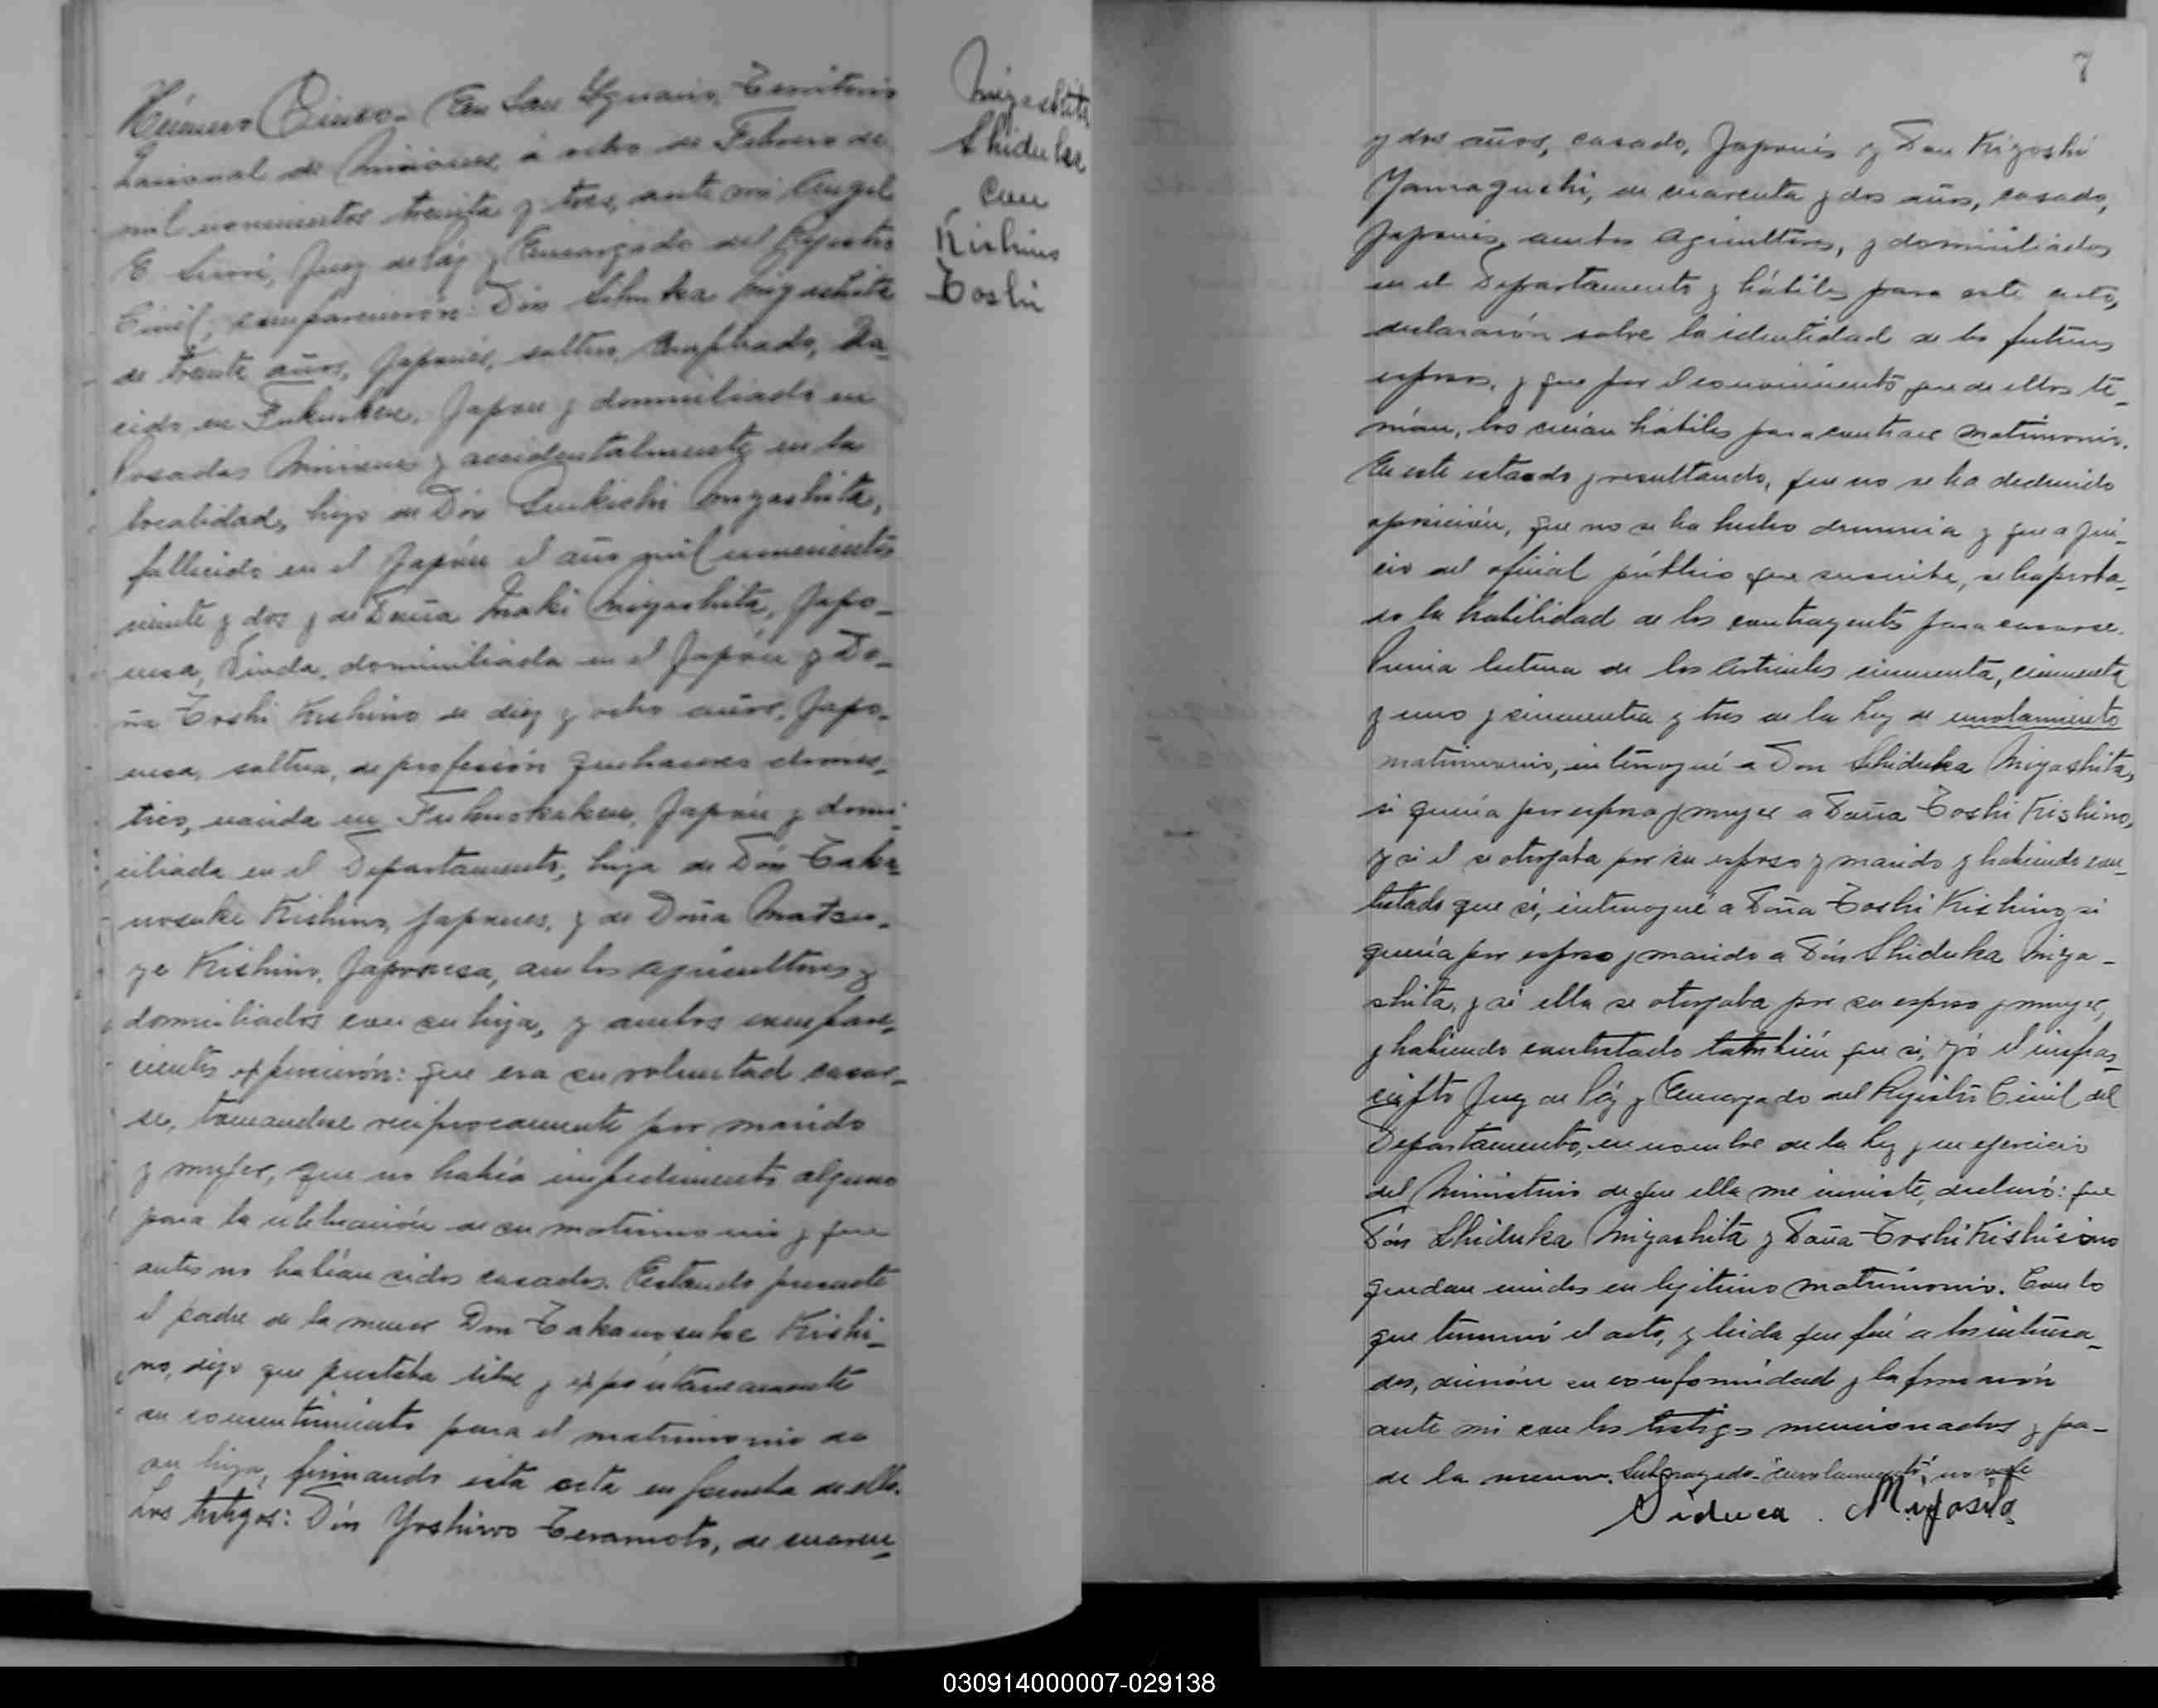 Número Cinco - En San Ygnacio, Territorio
Nacional de Misiones, á ocho de Febrero de
mil novecientos treinta y tres, ante mi Angel
E. Juez de Páz y Encargado del Registro
Civil, comparecieron: Dón Miyashita
de treinta años, Japonés, soltero, Empleado, Na-
cido en Japon y domiciliado en
Posadas Misiones y accidentalmente en la
localidad, hijo de Dón Miyashita,
fallecido en el Japón el año mil novecientos
veinte y dos y de Doña Maki Miyashita, Japo-
nesa, Viuda, domiciliada en el Japón y Do-
ña Toshi Kishino de diez y ocho años, Japo-
nesa, soltera, de profesión quehaceres domes-
tico, nacida en Fukuokaken, Japón y domi-
ciliada en el Departamento, hija de Dón Taka-
nosuke Kishino, Japones, y de Doña Matsu-
ye Kishino, Japonesa, ambos agricultores y
domiciliados con su hija, y ambos compare-
cientes expusieron: que era su voluntad casar-
se, tomandose reciprocamente por marido
y mujer, que no había impedimento alguno
para la celebración de su matrimonio y que
antes no habían sidos casados. Estando presente
el padre de la menor Don Takanosuke Kishi-
no, dijo que prestaba libre y expontaneamente
su consentimiento para el matrimonio de
su hija, firmando esta acta en prueba de ello.
Los testigos: Dón Yoshiwo Teramoto, de cuaren-
Miyashita
Shiduka
con
Kishino
Toshi
7
y dos años, casado, Japonés y Don Kiyoshi
Yamaguchi, de cuarenta y dos años, casado,
Japonés, ambos agricultores, y domiciliados
en el Departamento y hábiles para este acto,
declararón sobre la identidad de los futuros
esposos, y que por el conocimiento que de ellos te-
nian, los creían hábiles para contraer matrimonio.
En este estado y resultando, que no se ha deducido
oposición, que no se ha hecho denuncia y que a jui-
cio del oficial público que suscribe, se ha proba-
do la habilidad de los contrayentes para casarse.
Previa lectura de los articulos cincuenta, cincuenta
y uno y cincuenta y tres de la Ley de enrolamiento
matrimonio, interrogué a Don Shiduka Miyashita,
si quería por esposa y mujer a Doña Toshi Kishino,
y si el se otorgaba por su esposo y marido y habiendo con-
testado que si, interrogué a Doña Toshi Kishino si
quería por esposo y marido a Dón Shiduka Miya-
shita, y si ella se otorgaba por su esposa y mujer,
y habiendo contestado también que si, yó el infras-
cripto Juez de Páz y Encargado del Registro Civil del
Departamento, en nombre de la Ley y en ejercicio
del Ministerio de que ella me inviste, declaro: que
Dón Shiduka Miyashita y Doña Toshi Kishino
quedan unidos en legitimo matrimonio. Con lo
que terminó el acto, y leida que fué a los interesa-
dos, dieron su conformidad y la firmarón
ante mi con los testigos mencionados y pa-
de la menor. Subrayado "enrolamiento", no vale
Siduca . Miyasita
030914000007-029138